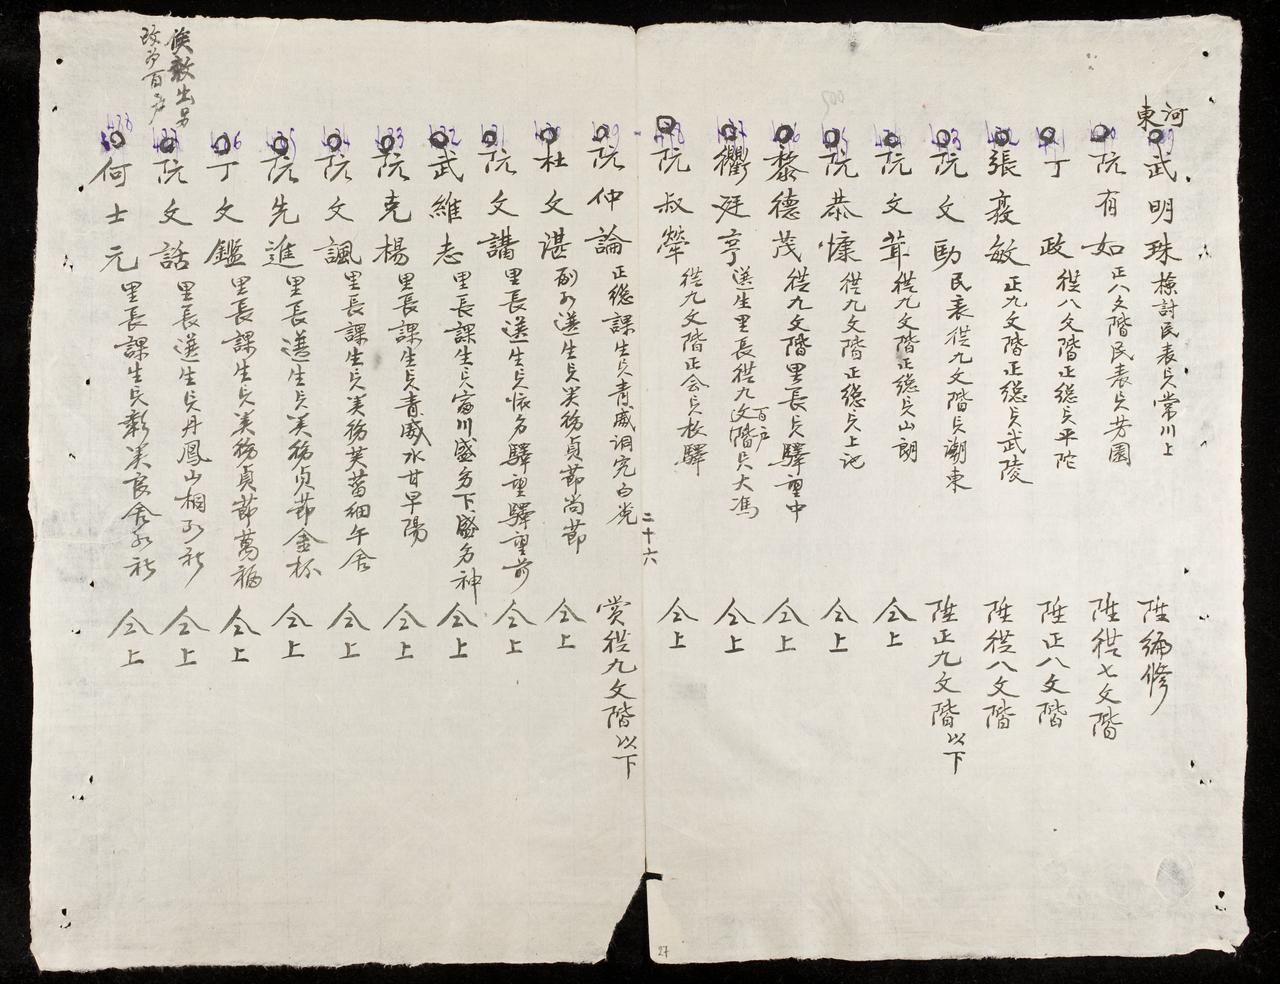 河東
武明珠 檢討民表員常川上 陞編修
阮有如 正八文階民表員芳園 陞從七文階
丁政 從八文階正總員平陀 陞正八文階
張嘉敏 正九文階正總員武陵 陞從八文階
阮文勛 民表從九文階員潮東 陞正九文階以下
阮文葺 從九文階正總員山朗 仝上
阮恭慷 從九文階正總員上池 仝上
黎德茂 從九文階里長員驛望中 仝上
衢廷亨 選生里長從九文階員大馮 百户 仝上
阮叔犖 從九文階正会員枚驛 仝上
二十六
阮仲論 正總課生員青威洞完白 賞從九文階以下
杜文湛 選生員美務貞節尚節 仝上
阮文講 里長選生員懷多驛望驛望前 仝上
武維志 里長課生員富川盛多下盛多神 仝上
阮克楊 里長課生員青威水甘早陽 仝上
阮文諷 里長課生員美務芙蕾細午舍 仝上
阮先進 里長選生員美務貞節金杯 仝上
丁文鑑 里長課生員美務貞節萬福 仝上
阮文話 里長選生員丹鳳山桐 仝上
何士元 里長課生員彰美良舍 仝上
候敕出另
改爲百户
27